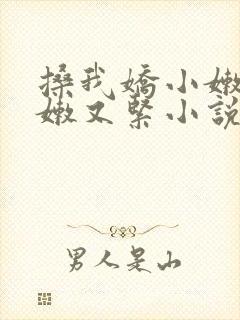 搡我嬌小嫩
嫩又緊小說
男人是山